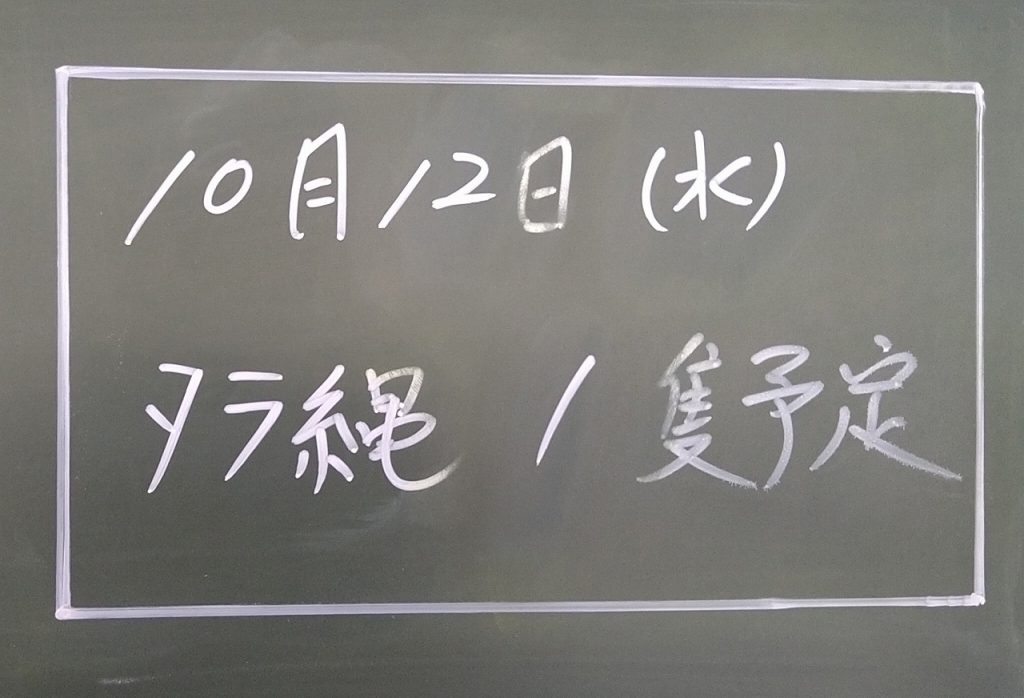 10月12日(水)
タラ縄 1隻予定